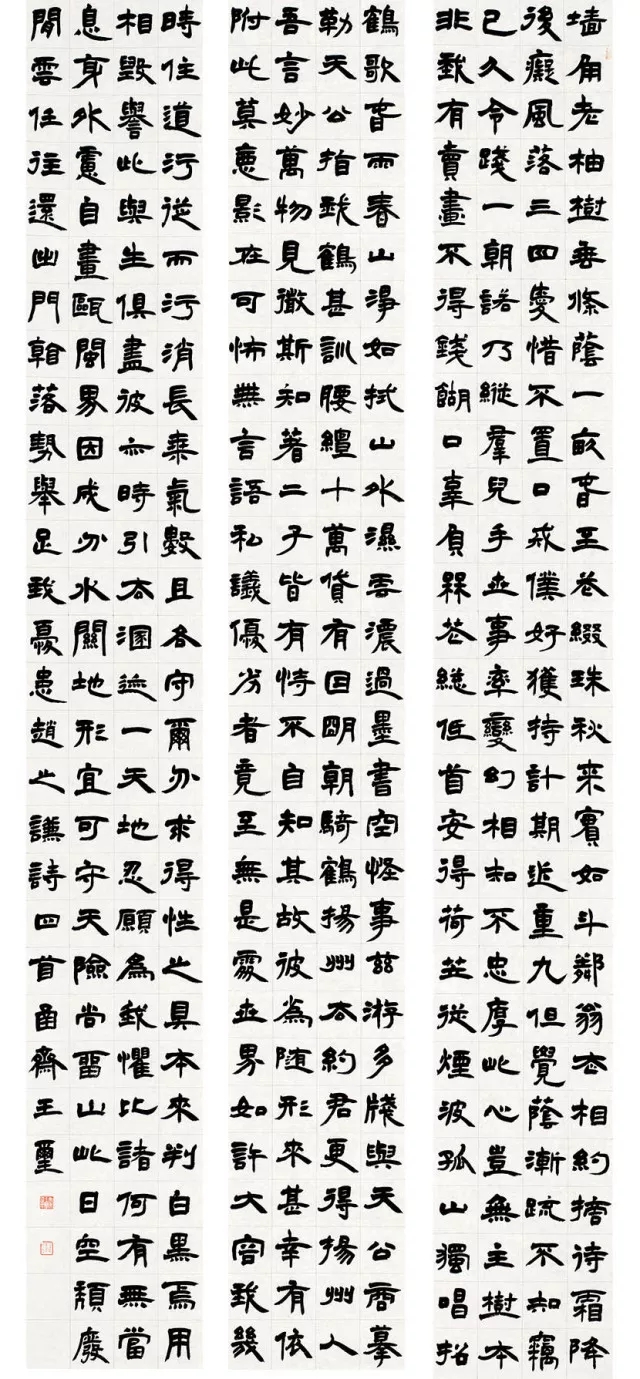 墙角老柚樹垂條蔭一畝旾至花綴珠秋來實如斗鄰翁去相約摘待霜降
後癡風落三四愛惜不置口戒僕好護持計期近重九但覺蔭漸疏不知竊
已久令踐一朝諾乃縱群兒手世事率變幻相知不忠厚此心豈無主樹本
非我有賣畫不得錢餬口辜負花總低首安得荷笠從煙波孤山獨唱招
鶴歌旾雨春山淨如拭山外濕雲濃過墨書空怪事茲游多牋與天公商摹
勒天公拍我鶴甚訓腰纏十萬貸有因明朝騎鶴揚州去約君更得揚州人
吾言妙萬物見微斯知著二子皆有恃不自知其故彼為随形來甚幸有依
附此莫影在可怖無言語私議優劣者竟至無是處世界如許大容我幾
時住道行從而行消長乘氣數且各守爾分求得性之具本來判白黑焉用
相毀譽此與生俱盡彼亦時引去溷跡一天地忍願為我懼比諸何有無當
息身外慮自畫甌閩界因成分水關地形宜可守天險尚留山此日空頹廢
閒雲任往還出門落勢舉足我憂患趙之謙詩四首齋王璽